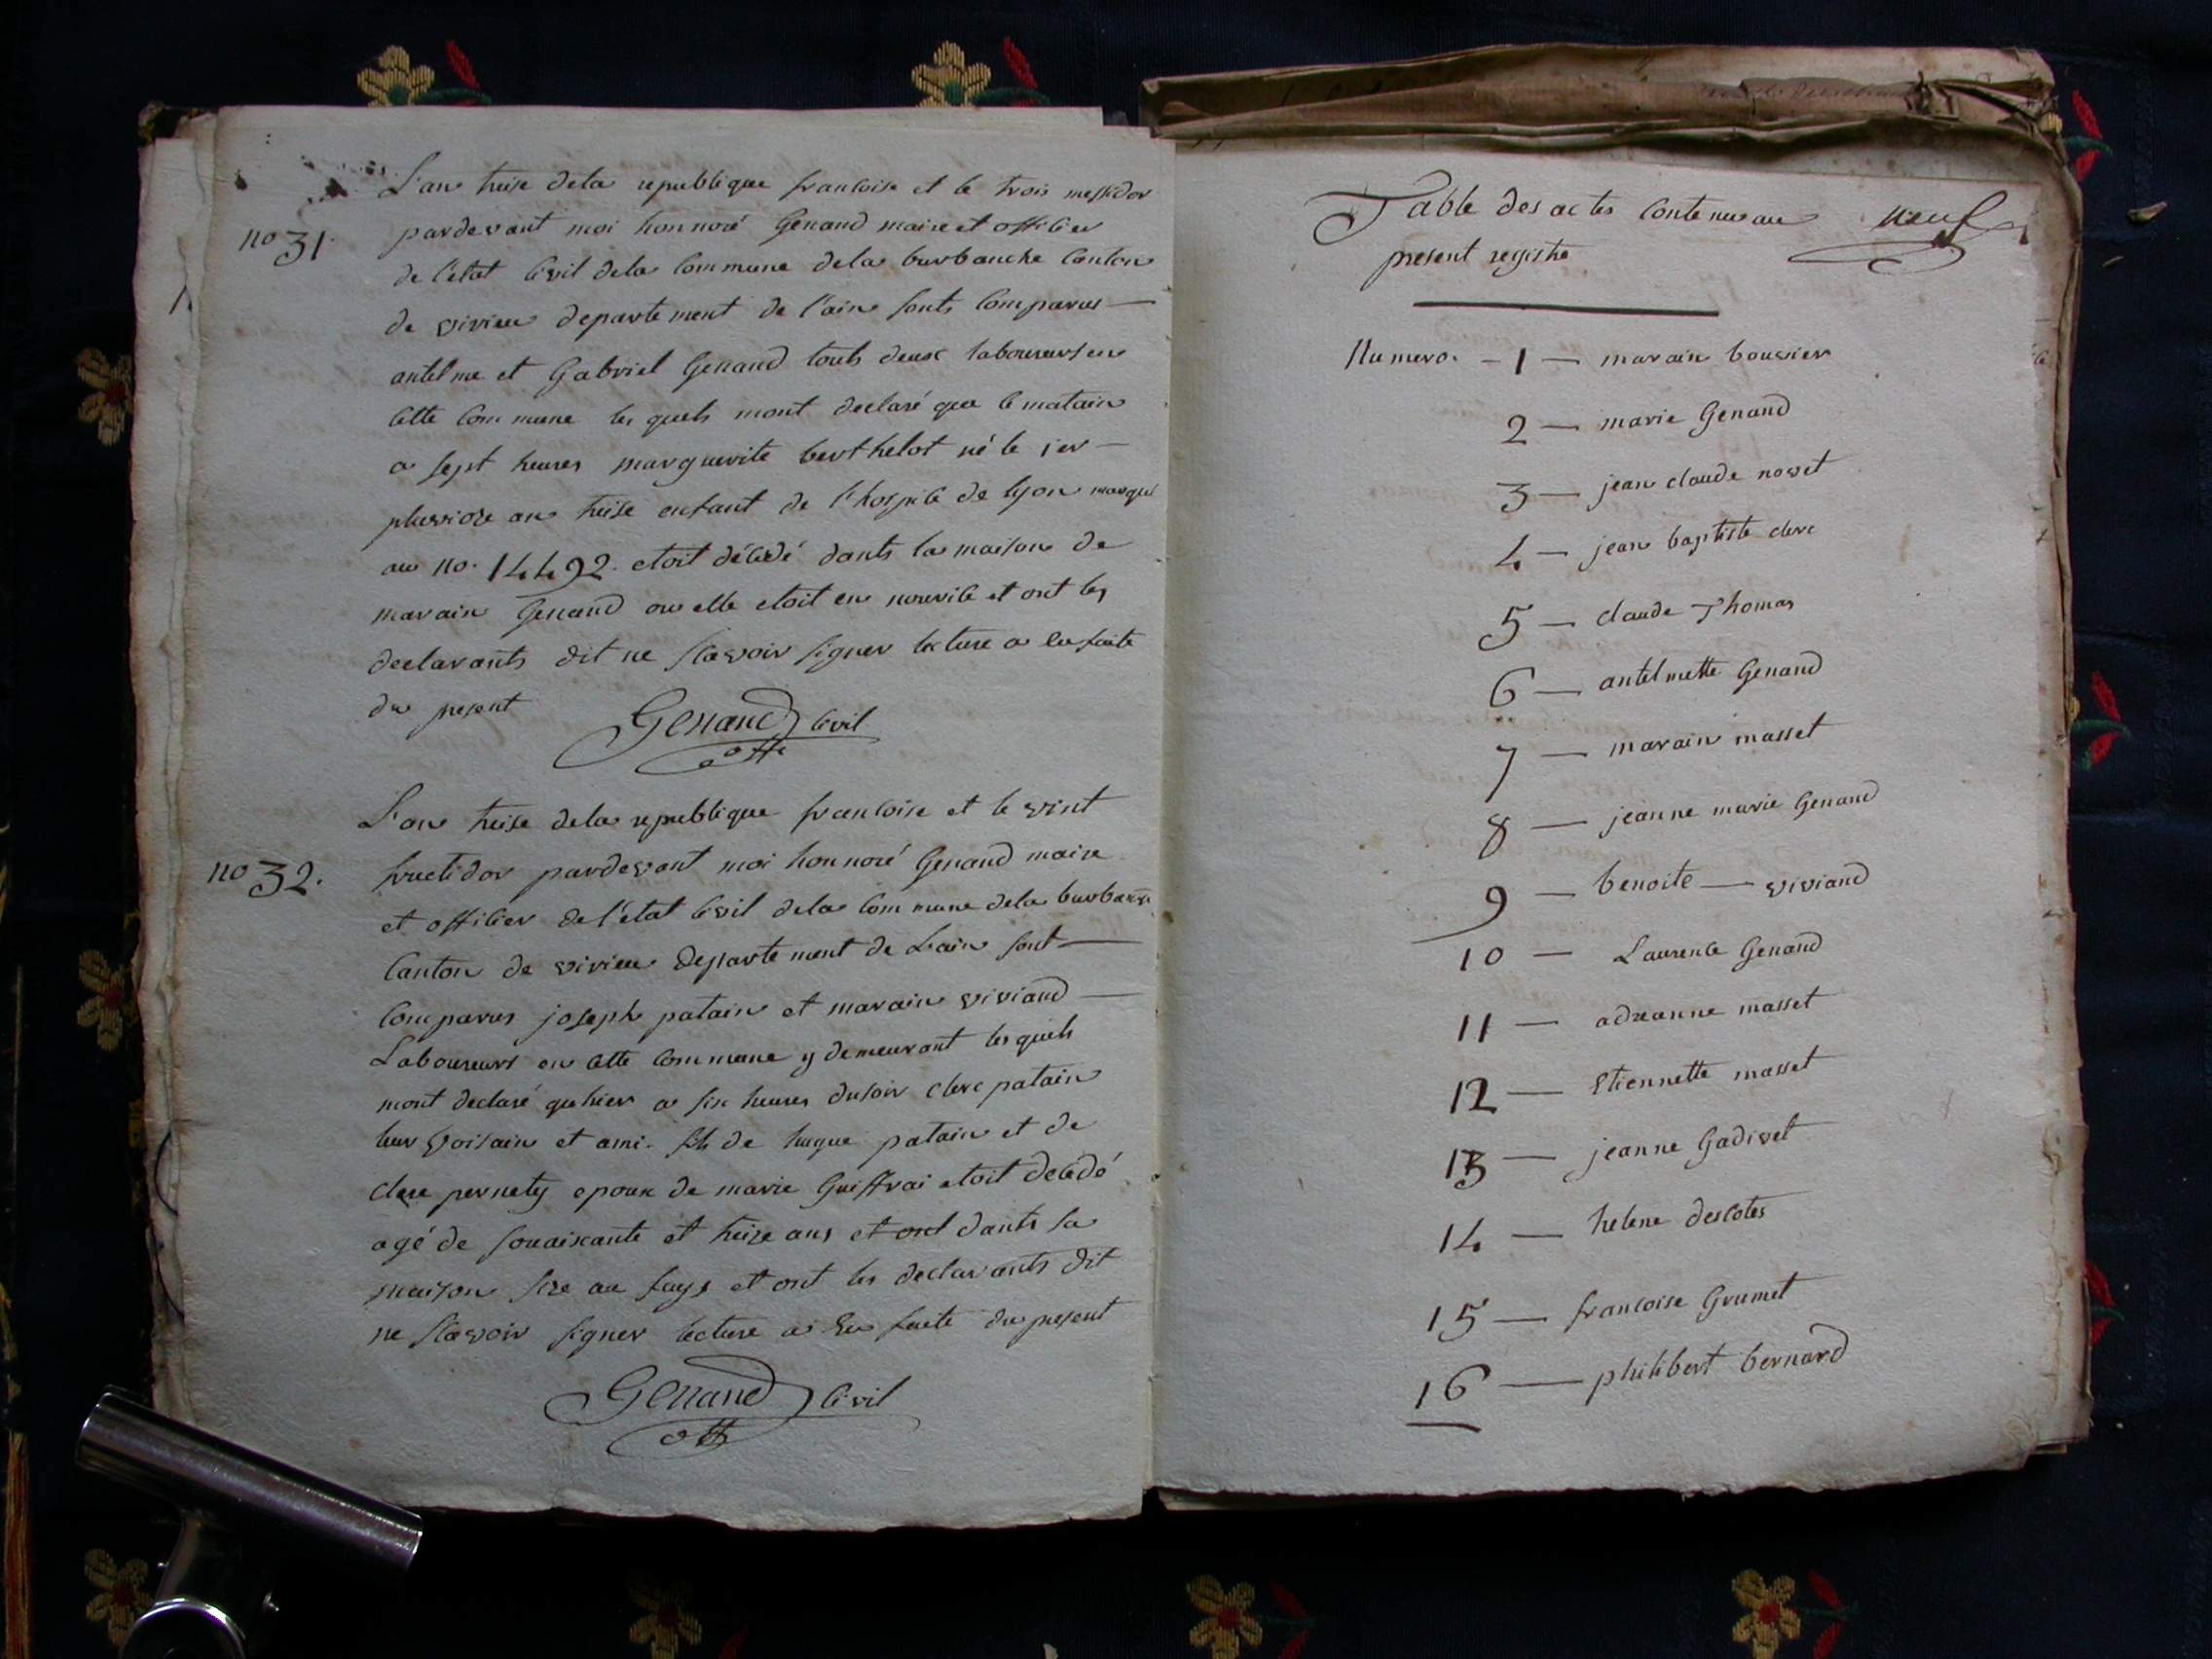 L'an treise dela republique francoise et le trois messidor
no 31. pardevant moi honnoré Genand maire et officier
de l'état civil dela commune dela burbanche canton
de virieu departement de l'ain sonts comparus —
antelme et Gabriel Genand touts deux laboureurs en
cette commune les quels mont declaré que le matain
a sept heures marguerite berthelot né le 1er —
pluviose an treise enfant de l'hospice de lyon marqué
au no. 14492. etoit décédé dants la maison de
marain Genand ou elle etoit en nourice et ont les
declarants dit ne scavoir signer lecture a eu faite
du present
Genand civil
off
L'an treise dela republique francoise et le vint
no 32. fructidor pardevant moi honnoré Genand maire
et officier de l'état civil dela commune dela burbanche
canton de virieu departement de Lain sont —
comparus joseph patain et marain viviand —
Laboureurs en cette commune y demeurant les quels
mont declaré quhier a six heures dusoir clerc patain
leur voisain et ami. fils de hugue patain et de
clere pernety epoux de marie Guiffrai etoit decédé
agé de souaixante et treize ans et ont dants sa
maison size au fays et ont les declarants dit
ne scavoir signer lecture a eu faite du present
Genand civil
off
Table des actes contenu au neuf
present registre
Numero. – 1 — marain bouvier
2 — marie Genand
3 — jean claude novet
4 — jean baptiste clerc
5 — claude Thomas
6 — antelmette Genand
7 — marain masset
8 — jeanne marie Genand
9 — benoite — viviand
10 — Laurence Genand
11 — adreanne masset
12 — Etiennette masset
13 — jeanne Gadivet
14 — helene descotes
15 — francoise Grumet
16 — philibert bernard